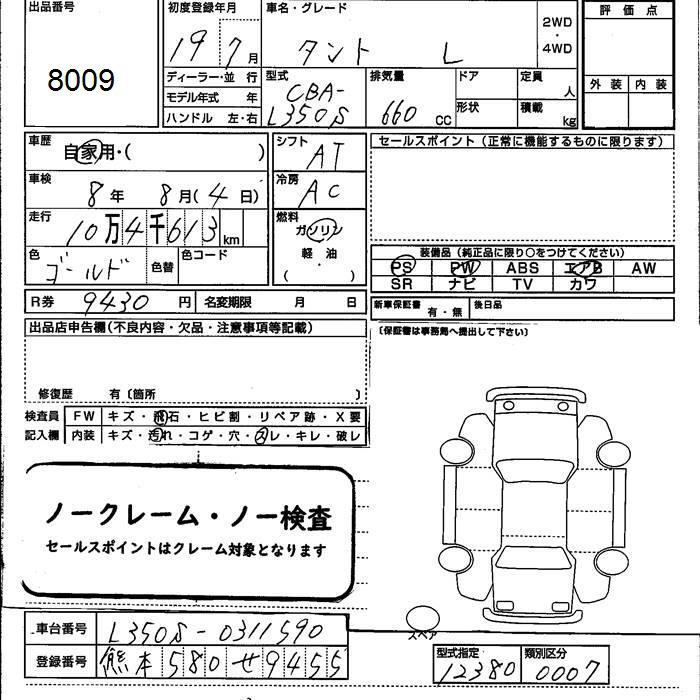 出品番号
8009
初度登録年月
19 7月
車名・グレード
タント L
2WD
・
4WD
評価点
外装 内装
ディーラー・並 行
モデル年式 年
ハンドル 左・右
型式
CBA-
L350S
排気量
660 CC
ドア
形状
定員
人
積載
kg
車歴
自家用・( )
シフト
AT
車検
8年 8月(4日)
冷房
AC
走行
10万4千613km
燃料
ガソリン
軽・油
( )
色
ゴールド
色替
色コード
R券 9430円
名変期限 月 日
セールスポイント(正常に機能するものに限ります)
装備品(純正品に限り○をつけてください)
PS PW ABS エアB AW
SR ナビ TV カワ
新車保証書
有・無
後日品
〔保証書は事務局へ提出して下さい〕
出品店申告欄(不良内容・欠品・注意事項等記載)
修復歴 有〔箇所 〕
検査員
記入欄
FW キズ・飛石・ヒビ割・リペア跡・X要
内装 キズ・汚れ・コゲ・穴・スレ・キレ・破レ
ノークレーム・ノー検査
セールスポイントはクレーム対象となります
スペア
車台番号 L350S-0311590
登録番号 熊本580せ9455
型式指定
12380
類別区分
0007